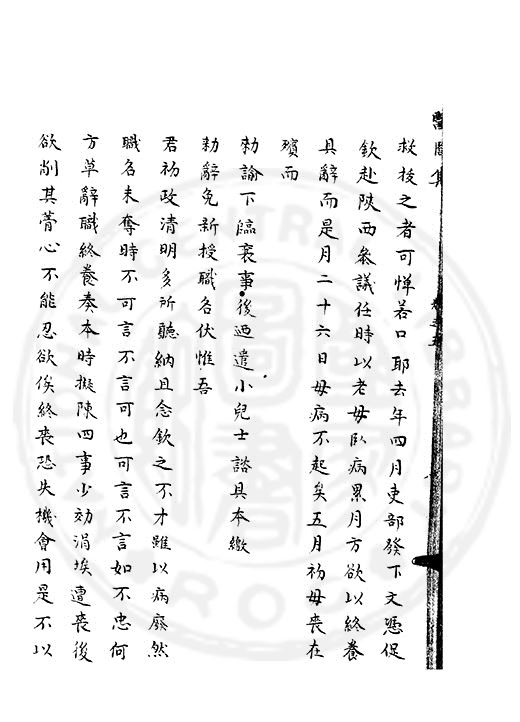 醫閭集
救援之者可憚若口耶去年四月吏部發下文憑促
欽赴陝西叅議任時以老母臥病累月方欲以終養
具辭而是月二十六日母病不起矣五月初母喪在
殯而
勑諭下臨襄事後迺遣小兒士諮具本繳
勑辭免新授職名伏惟吾
君初政清明多所聽納且念欽之不才雖以病廢然
職名未奪時不可言不言可也可言不言如不忠何
方草辭職終養奏本時擬陳四事少効涓埃遭喪後
欲削其藁心不能忍欲俟終喪恐失機會用是不以